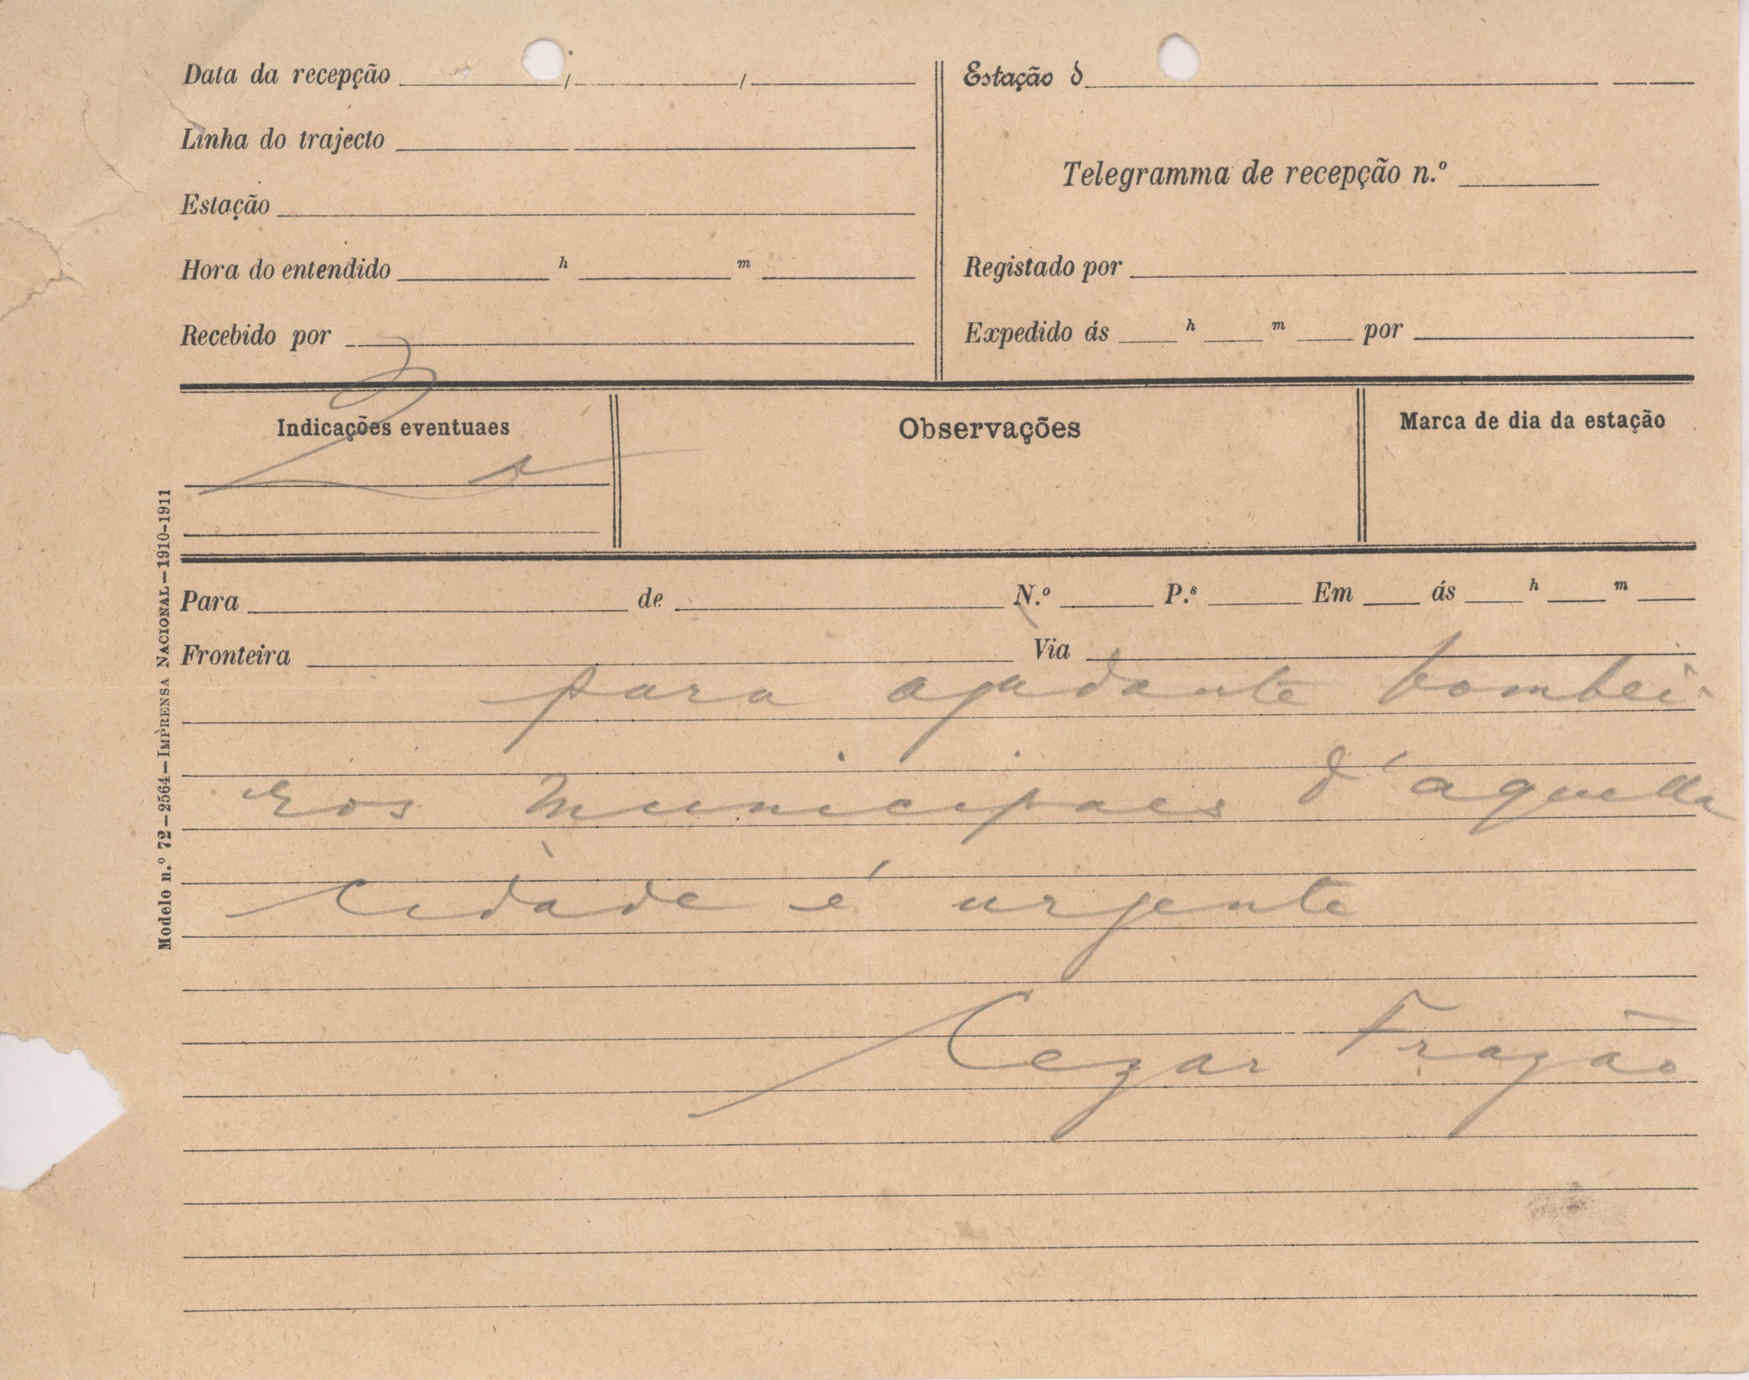 Data da recepção / /
Linha do trajecto
Estação
Hora do entendido h m
Recebido por
Estação d
Telegramma de recepção n.º
Registado por
Expedido ás h m por
Indicações eventuaes
Observações
Marca de dia da estação
Modelo n.º 72—2564—IMPRENSA NACIONAL—1910-1911
Para de N.º P.s Em ás h m
Fronteira Via
para ajudante bombei-
ros municipaes d'aquella
cidade é urgente
Cezar Frazão